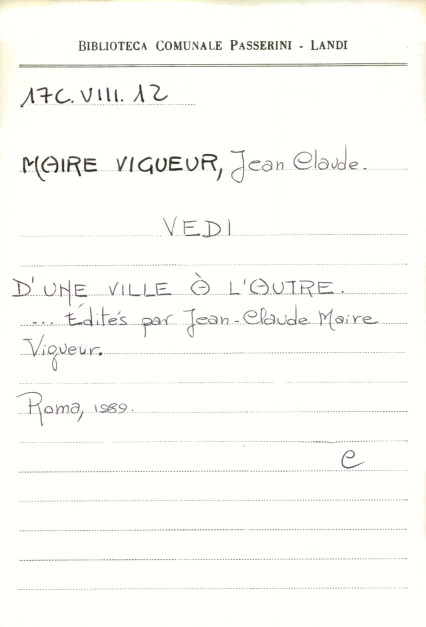 BIBLIOTECA COMUNALE PASSERINI - LANDI
17C. VIII. 12
MAIRE VIGUEUR, Jean Claude.
VEDI
D'UNE VILLE À L'AUTRE.
... Édités par Jean-Claude Maire
Vigueur.
Roma, 1989.
e